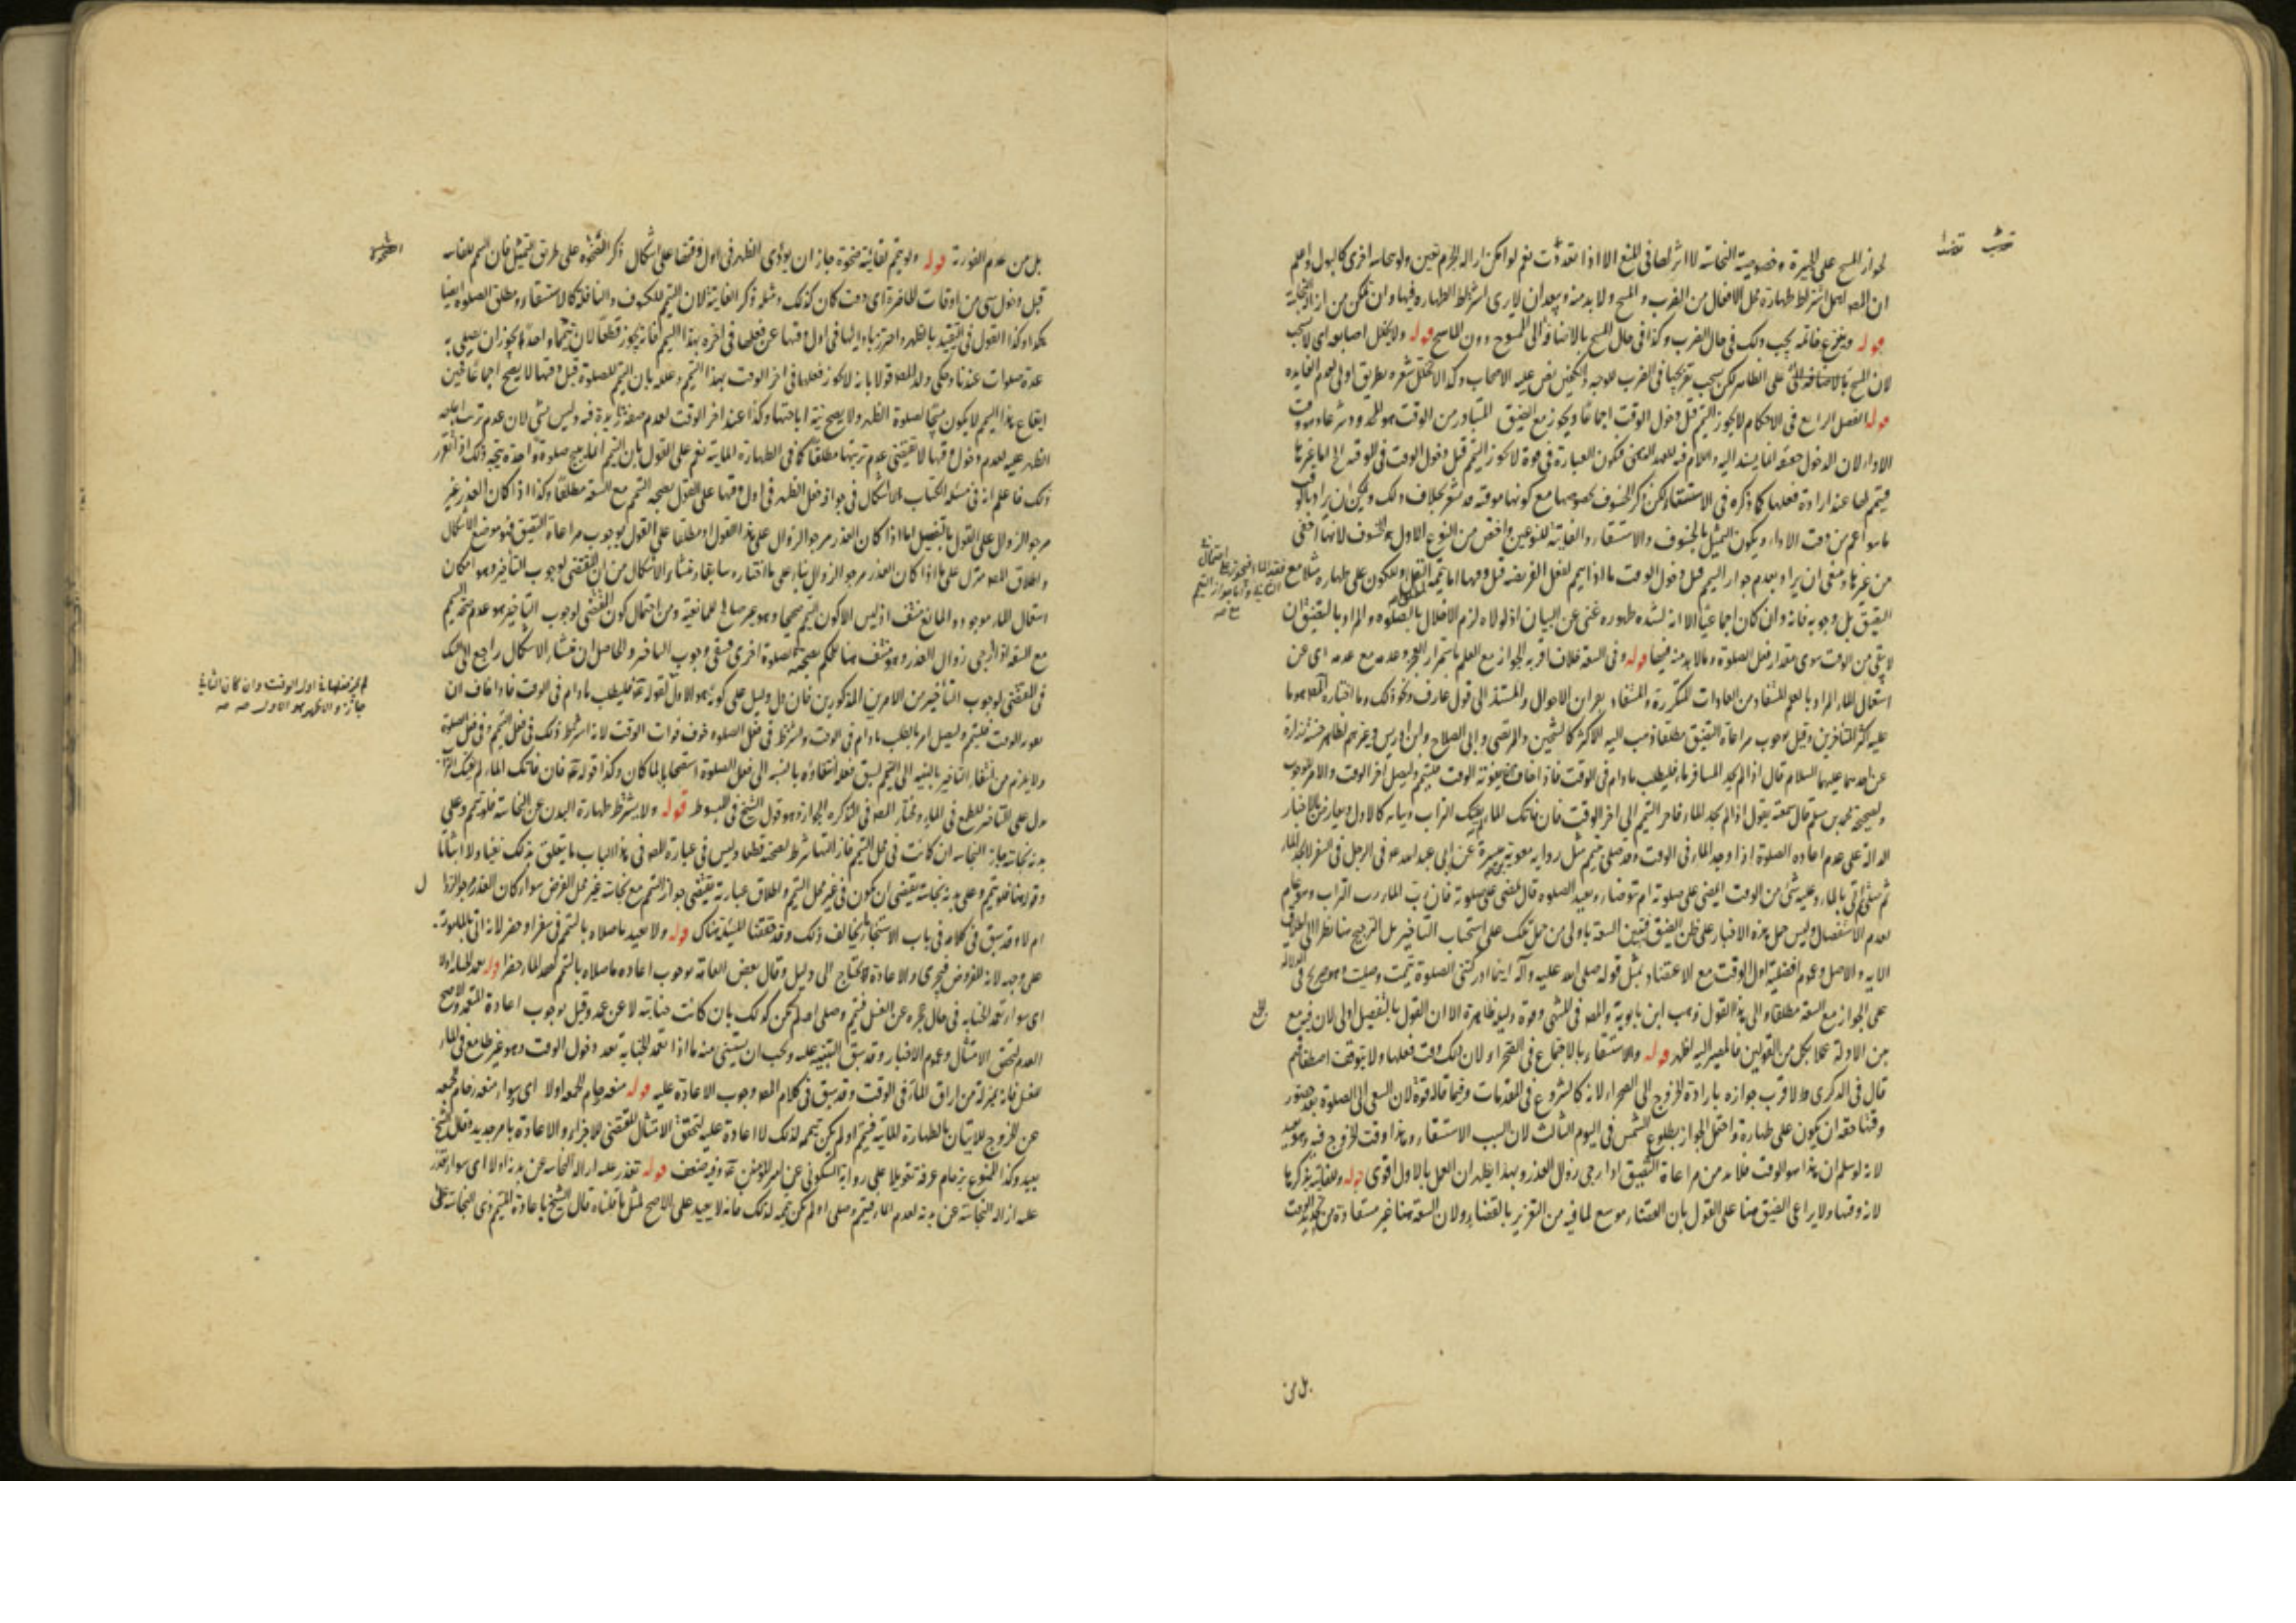 لجواز المسح على الجبيرة وخصوصية النجاسة لا اثر لها في المنع الا اذا تعدت نعم لو امكن ازالة الجرم تعين ولو بنجاسة اخرى كالبول واعلم
ان المص اهمل اشتراط طهارة محل الافعال من الضرب والمسح ولا بد منه ويبعد ان لا يرى اشتراط الطهارة فيها وان تمكن من ازالة النجاسة
قوله وينزع خاتمه يجب ذلك في حال الضرب وكذا في حال المسح بالاضافة الى الممسوح دون الماسح قوله ولا يخلل اصابعه اي لا يجب
لان المسح بالاضافة الى الظاهر لكن يستحب تفريجها في الضرب نص عليه الاصحاب وكذا لا يخلل شعره بطريق اولى لعدم الفايده
قوله الفصل الرابع في الاحكام لا يجوز التيمم قبل دخول الوقت اجماعا ويجوز مع الضيق المتبادر من الوقت هو المحدود شرعا وهو وقت
الاداء لان الدخول حقيقة انما يسند اليه واللام فيه للعهد الذهني فتكون العبارة في قوة لا يجوز التيمم قبل دخول الوقت في الموقتة اما غيرها
فيتيمم لها عند ارادة فعلها كما ذكره في الاستسقاء لكن ذكر الخسوف بخصوصها مع كونها موقتة قد يشعر بخلاف ذلك ويمكن ان يراد بالوقت
ما هو اعم من وقت الاداء ويكون التمثيل بالخسوف والاستسقاء والفايتة للنوعين واختص من النوع الاول بالخسوف لانها اخفى
من غيرها وينبغي ان يراد بعدم جواز التيمم قبل دخول الوقت ما اذا تيمم لفعل الفريضة قبل وقتها اما تيمم النفل او للكون على طهارة مثلا مع
التضيق بل وجوبه فانه وان كان اجماعيا الا انه لشدة ظهوره غني عن البيان اذ لولاه لزم الاخلال بالصلوة والمراد بالتضيق ان
لا يبقى من الوقت سوى مقدار فعل الصلوة وما لا بد منه فيها قوله وفي السعة خلاف اقربه الجواز مع العلم باستمرار العجز وعدمه مع عدمه اي عن
استعمال الماء المراد بالعلم المستفاد من العادات المتكررة والمستفاد بقراين الاحوال والمستند الى قول عارف ونحو ذلك وما اختاره المص هو ما
عليه اكثر المتاخرين وقيل بوجوب مراعاة التضيق مطلقا ذهب اليه الاكثر كالشيخين والمرتضى وابي الصلاح وابن ادريس وغيرهم لظاهر حسنة زرارة
عن احدهما عليهما السلام قال اذا لم يجد المسافر ماء فليطلب ما دام في الوقت فاذا خاف ان يفوته الوقت فليتيمم وليصل اخر الوقت والامر للوجوب
ولصحيحة محمد بن مسلم قال سمعته يقول اذا لم يجد الماء فاخر التيمم الى اخر الوقت فان فاتك الماء لم يفتك التراب وبيانه كالاول ويعارض بالاخبار
الدالة على عدم اعاده الصلوة اذا وجد الماء في الوقت وقد صلى بتيمم مثل رواية معوية بن ميسرة عن ابي عبد الله ع في الرجل في السفر لا يجد الماء
ثم صلى ثم اتى بالماء وعليه شيء من الوقت ايمضي على صلوته ام يتوضاء ويعيد الصلوه قال يمضي على صلوته فان رب الماء رب التراب وهو عام
لعدم الاستفصال وليس حمل هذه الاخبار على ظن الضيق فتبين السعة باولى من حمل تلك على استحباب التاخير بل الترجيح هنا نظرا الى اطلاق
الايه والاصل وعموم افضلية اول الوقت مع الاعتضاد بمثل قوله صلى الله عليه وآله اينما ادركتني الصلوة تيممت وصليت وهو صريح في الدلالة
على الجواز مع السعة مطلقا والى هذا القول ذهب ابن بابويه والمص في المنتهى وقوة دليله ظاهرة الا ان القول بالتفصيل اولى لان فيه جمعا
بين الادلة عملا بكل من القولين فالمصير اليه اظهر قوله والاستسقاء بالاجتماع في الصحراء لان ذلك وقت فعلها ولا يتوقف اصطفافهم
قال في الذكرى والاقرب جوازه بارادة الخروج الى الصحراء لانه كالشروع في المقدمات وفيما قاله قوة لان السعي الى الصلوة بعد حضور
وقتها حقه ان يكون على طهارة واحتمل الجواز بطلوع الشمس في اليوم الثالث لان السبب الاستسقاء وهذا وقت الخروج فيه وهو بعيد
لانه لو سلم ان هذا هو الوقت فلا بد من مراعاة التضيق اذا رجي زوال العذر وبهذا يظهر ان العمل بالاول اقوى قوله وللفايتة بذكرها
لانه وقتها ولا يراعى الضيق هنا على القول بان القضاء موسع لما فيه من التغرير بالقضاء ولان السعة هنا غير مستفادة من تحديد الوقت
بل من
بل من عدم الفورية قوله ولو تيمم لفايتة ضحوة جاز ان يؤدي الظهر في اول وقتها على اشكال ذكر الضحوة على طريق التمثيل فان التيمم للفايتة
قبل دخول شيء من اوقات الحاضرة اي وقت كان كذلك ومثله ذكر الفايتة لان التيمم للكسوف والنافلة كالاستسقاء ومطلق الصلوة ايضا
هكذا وكذا القول في التقييد بالظهر واحترز باداءها في اول وقتها عن فعلها في اخره بهذا التيمم فانه يجوز قطعا لان تيمما واحدا يجوز ان يصلى به
عدة صلوات عندنا وحكى ولد المص قولا بانه لا يجوز فعلها في اخر الوقت بهذا التيمم وعلله بان التيمم للصلوة قبل وقتها لا يصح اجماعا فحين
ايقاع هذا التيمم لا يكون متيمما لصلوة الظهر ولا يصح نية اباحتها وكذا عند اخر الوقت لعدم صفة زايدة فيه وليس بشيء لان عدم ترتب اباحة
الظهر عليه لعدم دخول وقتها لا يقتضي عدم ترتبها مطلقا كما في الطهارة المائية نعم على القول بان التيمم انما يبيح صلوة واحدة يتجه ذلك اذا تقرر
ذلك فاعلم انه في مسئلة الكتاب لا اشكال في جواز فعل الظهر في اول وقتها على القول بصحة التيمم مع السعة مطلقا وكذا اذا كان العذر غير
مرجو الزوال على القول بالتفصيل اما اذا كان العذر مرجو الزوال على هذا القول او مطلقا على القول بوجوب مراعاة التضيق فهو موضع الاشكال
واطلاق المص منزل على ما اذا كان العذر مرجو الزوال بناء على ما اختاره سابقا ومنشاء الاشكال من ان المقتضى لوجوب التاخير وهو امكان
استعمال الماء موجود والمانع منتف اذ ليس الا كون التيمم صحيحا وهو غير صالح للمانعية ومن احتمال كون المقتضى لوجوب التاخير هو عدم صحة التيمم
مع السعة اذا رجي زوال العذر وهو منتف هنا للحكم بصحته لصلوة اخرى فينتفي وجوب التاخير والحاصل ان منشاء الاشكال راجع الى الشك
في المقتضى لوجوب التاخير من الامرين المذكورين فان دل دليل على كونه هو الاول لقوله ع فليطلب ما دام في الوقت فاذا خاف ان
يفوته الوقت فليتيمم وليصل امر بالطلب ما دام في الوقت وشرط في فعل الصلوه خوف فوات الوقت لانه اشترط ذلك في فعل التيمم وفي فعل الصلوة
ولا يلزم من انتفاء التاخير بالنسبة الى التيمم لسبق فعله انتفاؤه بالنسبه الى فعل الصلوة استصحابا لما كان وكذا قوله ع فان فاتك الماء لم يفتك التراب
دل على التاخير للطمع في الماء ومختار المص في التذكره الجواز وهو قول الشيخ في المبسوط قوله ولا يشترط طهارة البدن عن النجاسة فلو تيمم وعلى
بدنه نجاسة جاز النجاسه ان كانت في محل التيمم فازالتها شرط لصحته قطعا وليس في عبارة المص في هذا الباب ما يتعلق بذلك نفيا ولا اثباتا
وقوله هنا فلو تيمم وعلى بدنه نجاسة يقتضي ان يكون في غير محل التيمم واطلاق عبارته يقتضي جواز التيمم مع نجاسة غير محل الفرض سواء كان العذر مرجو الزوال
ام لا وقد سبق في كلامه في باب الاستنجاء ما يخالف ذلك وقد حققنا المسئلة هناك قوله ولا يعيد ما صلاه بالتيمم في سفر او حضر لانه اتى بالمامور به
على وجهه لانه المفروض فيجزي والاعادة تحتاج الى دليل وقال بعض العامة بوجوب اعاده ما صلاه بالتيمم لفقد الماء حضرا قوله تعمد الجنابة اولا
اي سواء تعمد الجنابه في حال عجزه عن الغسل فتيمم وصلى او لم يكن كذلك بان كانت جنابته لا عن عمد وقيل بوجوب اعادة المتعمد والاصح
العدم لتحقق الامتثال وعموم الاخبار وقد سبق التنبيه عليه ويجب ان يستثنى منه ما اذا تعمد الجنابة بعد دخول الوقت وهو غير طامع في الماء
للغسل فانه بمنزلة من اراق الماء في الوقت وقد سبق في كلام المص وجوب الاعادة عليه قوله منعه زحام الجمعة اولا اي سواء منعه زحام الجمعه
عن الخروج للاتيان بالطهارة المائية فتيمم او لم يكن تيممه لذلك لا اعادة عليه لتحقق الامتثال المقتضي للاجزاء والاعادة بامر جديد وقال الشيخ
يعيد وكذا الممنوع بزحام عرفة تعويلا على رواية السكوني عن امير المؤمنين ع وفيه ضعف قوله تعذر عليه ازالة النجاسة عن بدنه اولا اي سواء تعذر
عليه ازالة النجاسة عن بدنه لعدم الماء فتيمم وصلى او لم يكن تيممه لذلك فانه لا يعيد على الاصح لمثل ما قلناه قال الشيخ باعادة المتيمم ذي النجاسة على
لم يجز فعلها في اول الوقت وان كان الثاني
جاز والاظهر هو الاول صح